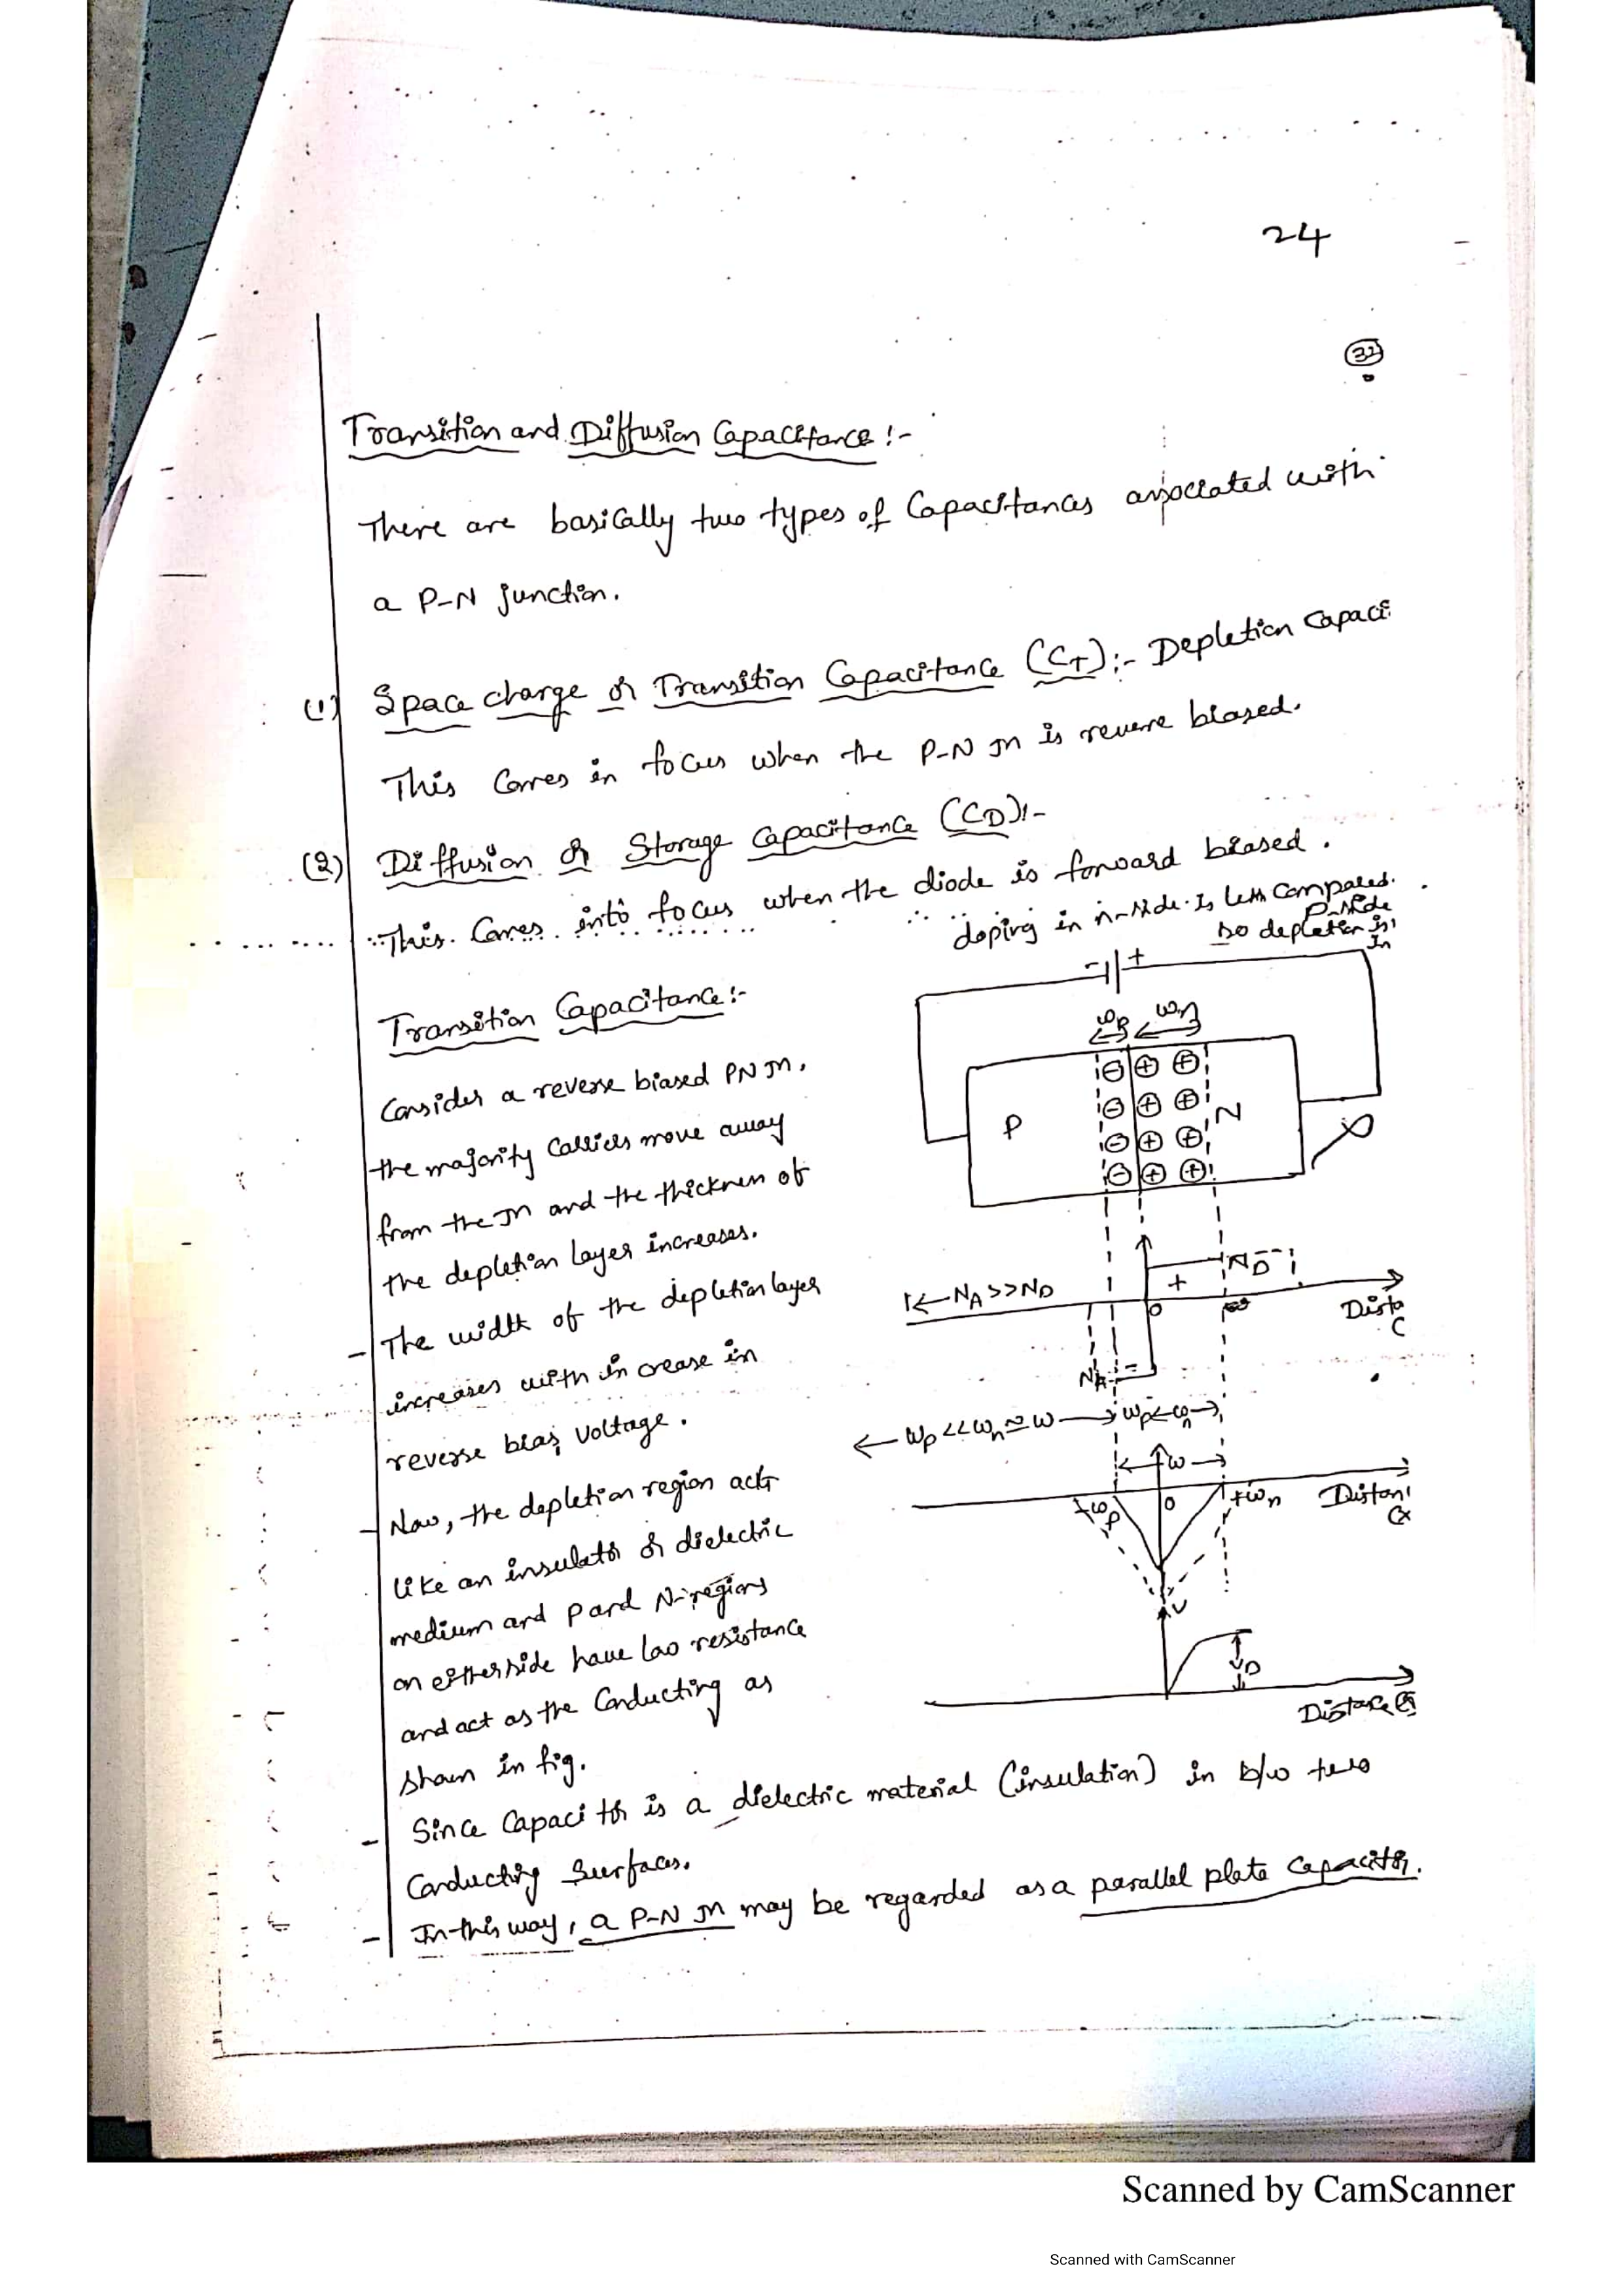 24
32
Transition and Diffusion Capacitance :-
There are basically two types of Capacitances associated with
a P-N junction.
(1) Space charge or Transition Capacitance (CT):- Depletion Capaci
This Comes in focus when the P-N Jn is reverse biased.
(2) Diffusion or Storage Capacitance (CD):-
This Comes into focus when the diode is forward biased.
doping in n-side is less compared
P-side
so depletion is
In
Transition Capacitance:-
Consider a reverse biased PN Jn.
the majority Carriers move away
from the Jn and the thickness of
the depletion layer increases.
- The width of the depletion layer
increases with increase in
reverse bias voltage.
- Now, the depletion region acts
like an insulator or dielectric
medium and P and N-regions
on either side have low resistance
and act as the Conducting as
shown in fig.
- Since Capacitor is a dielectric material (insulation) in b/w two
Conducting Surfaces.
- In this way, a P-N Jn may be regarded as a parallel plate Capacitor.
- +
Wp Wn
P N
NA >> ND
ND
+
0
NA -
Wp << Wn ≃ W
W
0 +Wn
V
VD
Scanned by CamScanner
Scanned with CamScanner